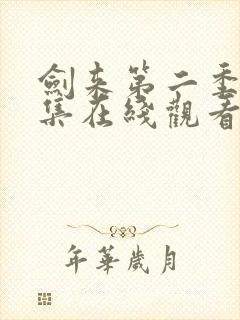 劍来第二季
集在綫觀看
年華歲月